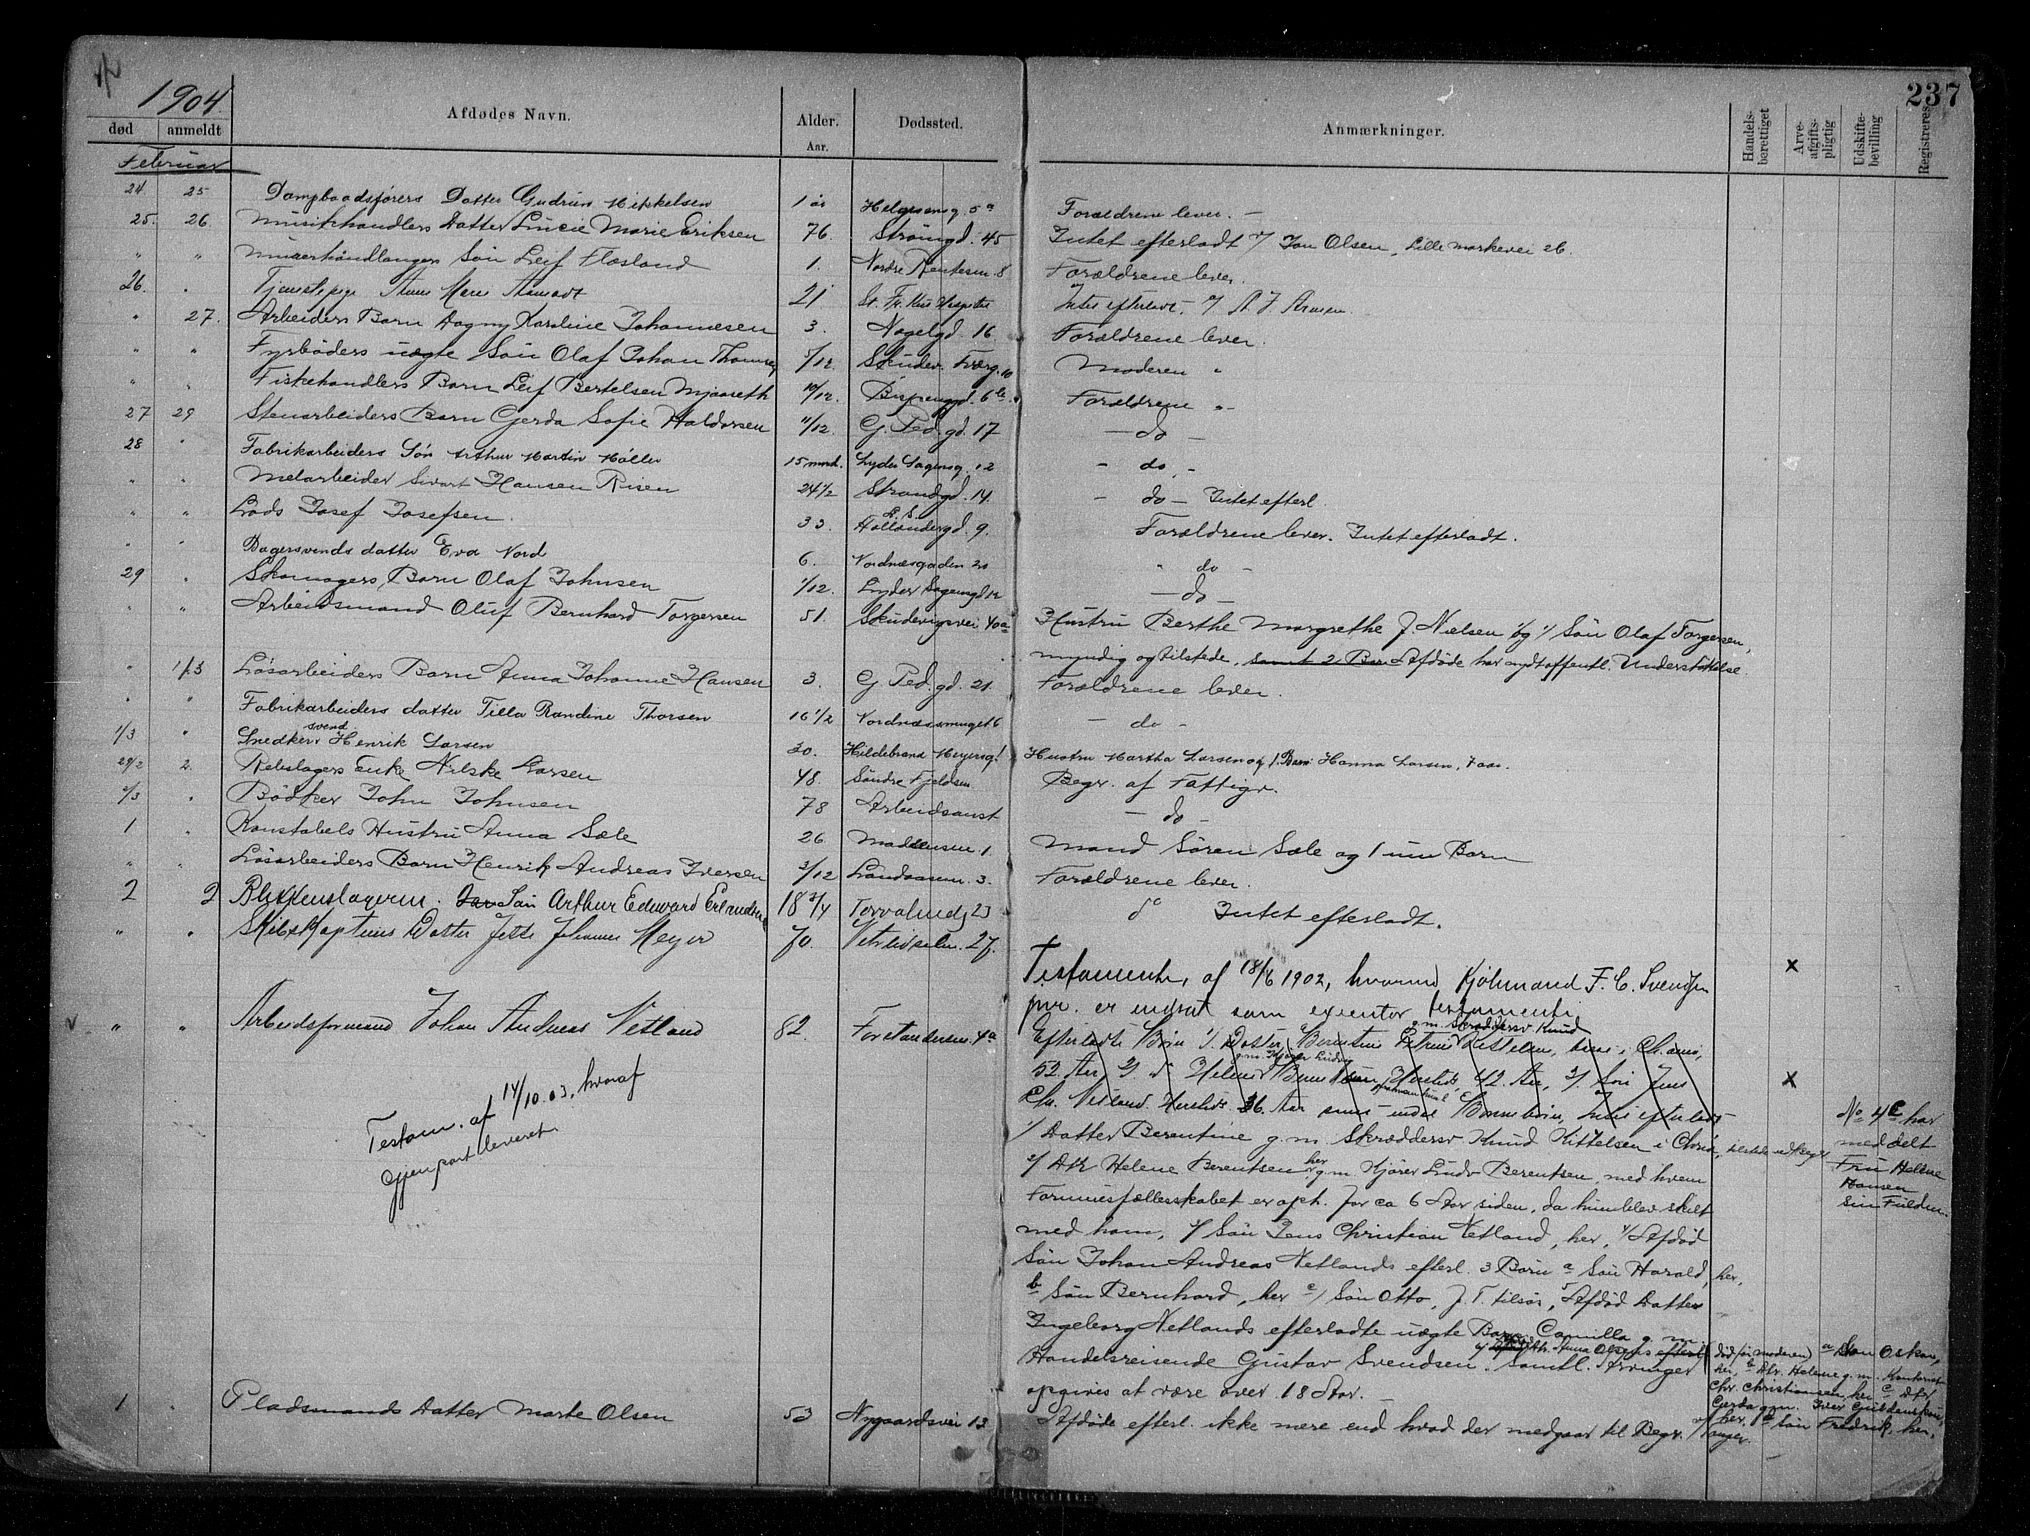 237
1904
død anmeldt Afdødes Navn. Alder. Aar. Dødssted. Anmærkninger. Handelsberettiget Arveafgiftspligtig Udskiftebevilling Registreres
Februar
24 25 Dampbaadsførers Datter Gudrun Mikkelsen 1 år Helgesensg. 5a Forældrene lever. —
25. 26 Musikhandlers Datter Lucie Marie Eriksen 76. Strangd. 45 Intet efterladt v/ Jon Olsen, Lille Markevei 26.
" " Murerhåndlangers Søn Leif Flæsland 1. Nordre 8 Forældrene lever.
26. " Tjenestepige Anne Marie 21 St. Fr. Kse Hospital Intet efterladt. v/ A. J.
" 27. Arbeiders Barn Dagny Karoline Johannesen 3. Nøgelgd. 16 Forældrene lever.
" " Fyrbøders uægte Søn Olaf Johan 5/12 Skudev. 10 Moderen "
" " Fiskehandlers Barn Leif Bertelsen Mjaaseth 10/12. Bispengd. 6b. Forældrene "
27 29 Stenarbeiders Barn Gerda Sofie Haldorsen 11/12 C. Ped. gd. 17 — do —
28 " Fabrikarbeiders Søn Arthur Martin Møller 15 mnd. Lyder Sagensg. 12 - do -
" " Melarbeider Sivert Hansen Risen 24 1/2 Strandgd. 14. - do — Intet efterl.
" " Lods Josef Josefsen. 33 Hollændergd. 9. Forældrene lever. Intet efterladt.
" " Bagersvends datter Eva Nord 6. Nordnæsgaden 20 " do -
29 " Skomagers Barn Olaf Johnsen 1/12. Lyder Sagensgd — do —
" " Arbeidsmand Oluf Bernhard Torgersen 51. Skudevigsvei 40a Hustru Berthe Margrethe J. Nielsen og 1/ Søn Olaf Torgersen,
myndig og tilstede, samt 2 Bar Afdøde har nydt offentl. Understøttelse.
" 1/3 Løsarbeiders Barn Anna Johanne Hansen 3. C. Ped. gd. 21. Forældrene lever.
" " Fabrikarbeiders datter Tilla Randine Thorsen 16 1/2 Nordnæssmuget 6 — do -
1/3 " Snedkersvend Henrik Larsen 30. Hildebrand Meyersg. 1 Hustru Martha Larsen og 1 Barn Hanna Larsen, 7 aar.
29/2 2. Rebslagers Enke Nilske Larsen 48. Søndre Fjeldsm Begr. af Fattigv.
2/3 " Bødker John Johnsen 78 Arbeidsanst — do —
1 " Konstabels Hustru Anna Sæle 26 1. Mand Søren Sæle og 1 um Barn
" " Løsarbeiders Barn Henrik Andreas Iversen 3/12 Landaasen. 3. Forældrene lever.
2 2 Blikkenslagerm. Søn Arthur Edward Erlandsen 18 3/4 Torvalmdg 23 do Intet efterladt.
" " Skibskapteins Datter Jette Johanne Meyer 70. Vetrlidsalm. 27. Testamente, af 18/6 1902, hvorved Kjøbmand F. C. Svendsen x
er indsat som executor testamenti.
" " Arbeidsformand Johan Andreas Netland 82. Forstandersm. 4a Efterladte Børn 1/ Datter Berentine g. m. Skræddersv Knud Kittelsen,
52 Aar, 2/ D Helene 42 Aar, 3/ Søn Jens x
Chr. Netland 36 Aar
Testam. af 14/10.03, hvoraf
gjenpart leveret.
1/ Datter Berentine g. m. Skræddersv Knud Kittelsen i Chria,
2/ Dtr Helene Berentsen her g. m Kjører Ludv Berentsen, med hvem
Formuesfællesskabet er oph. for ca 6 Aar siden, da hun blev skilt
med ham, 3/ Søn Jens Christian Netland, her, 4/ Afdød
Søn Johan Andreas Netlands efterl. 3 Børn a Søn Harald, her,
b Søn Bernhard, her c/ Søn Otto, p. T. tilsøs, 5 Afdød Datter
Ingeborg Netlands efterladte uægte Barn Camilla g. m
Handelsreisende Gustav Svendsen. Samtl. Arvinger
opgives at være over 18 Aar. —
No 4c har
meddelt
Fru Helene
Hansen
sin Fuldm.
død (moderen) a Søn Oskar,
her, b Dtr. Helene g. m. Kontorist
Chr. Christiansen her c Dtr
Gerda g. m. Iver
her. d Søn Fredrik, her,
1 " Pladsmands Datter Marte Olsen 53 Nygaardsvei 13 Afdøde efterl. ikke mere end hvad der medgaar til Begr.